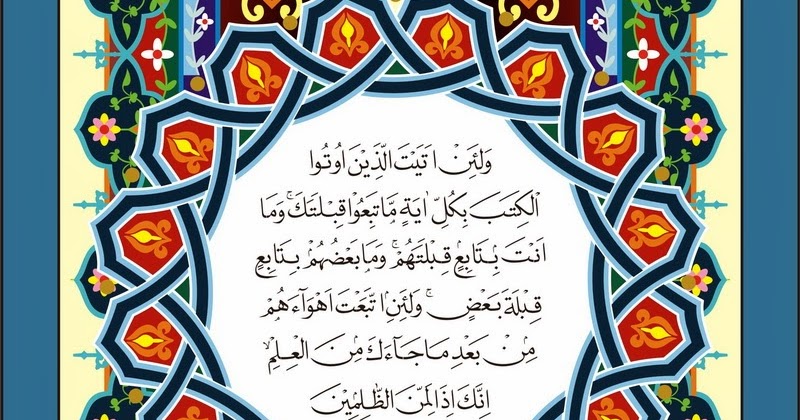 وَلَئِنْ اَتَيْتَ الَّذِيْنَ اُوْتُوا
الْكِتٰبَ بِكُلِّ اٰيَةٍ مَّا تَبِعُوْا قِبْلَتَكَ ۚ وَمَا
اَنْتَ بِتَابِعٍ قِبْلَتَهُمْ ۚ وَمَا بَعْضُهُمْ بِتَابِعٍ
قِبْلَةَ بَعْضٍ ۚ وَلَئِنِ اتَّبَعْتَ اَهْوَآءَهُمْ
مِنْ بَعْدِ مَا جَآءَكَ مِنَ الْعِلْمِ ۙ
اِنَّكَ اِذًا لَّمِنَ الظّٰلِمِيْنَ